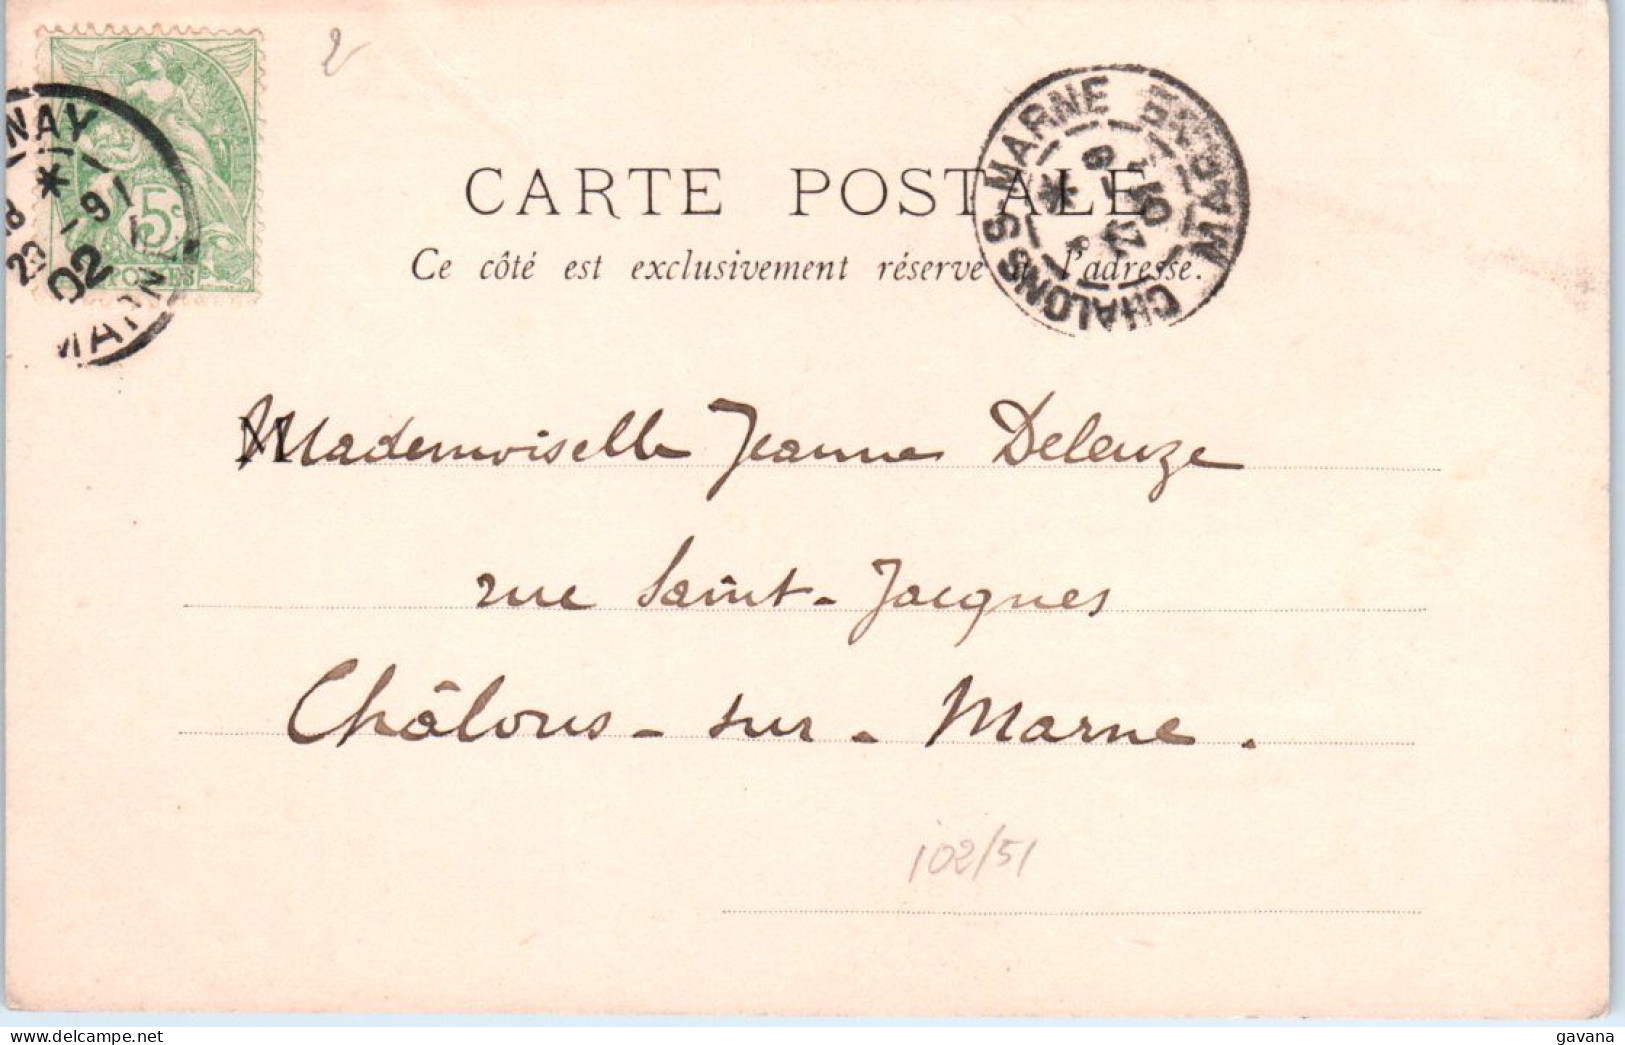 2
NAY
MARNE
02
5c
CARTE POSTALE
Ce côté est exclusivement réservé à l'adresse.
CHALONS S MARNE
MARNE
Mademoiselle Jeanne Deleuze
rue Saint-Jacques
Châlons-sur-Marne.
102/51
gavana